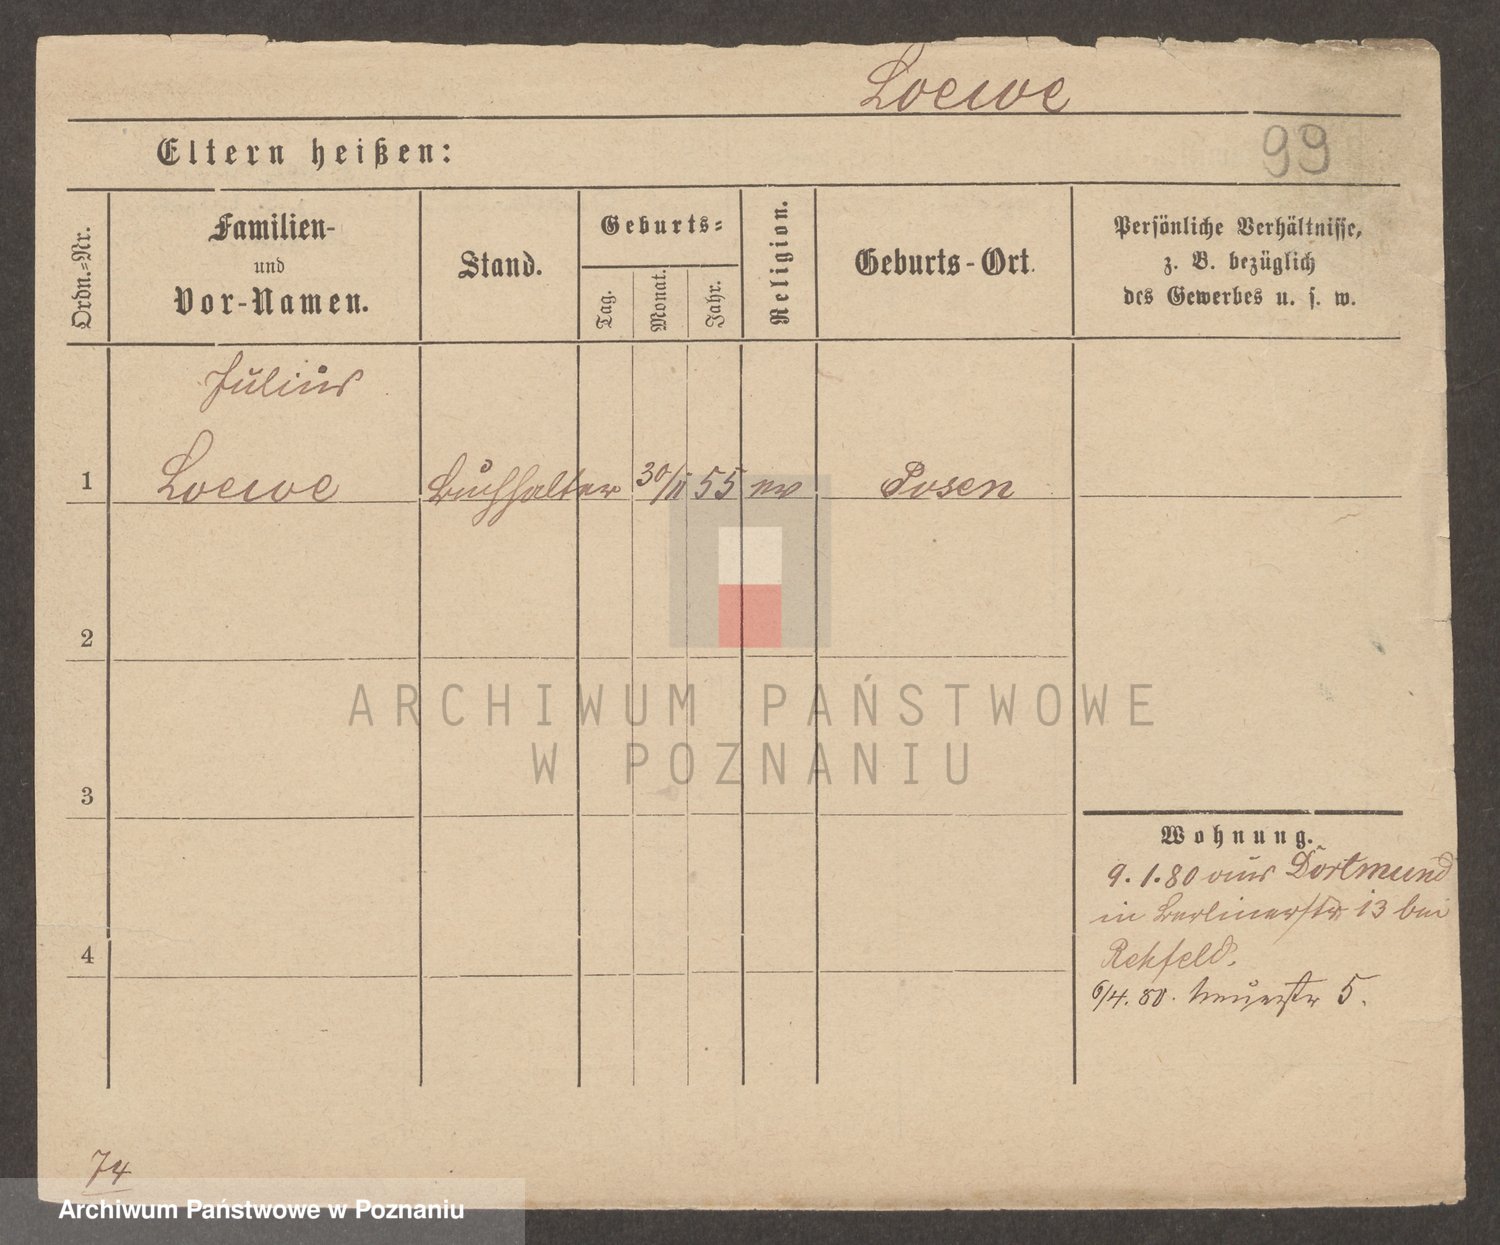 Loewe
99
Eltern heißen:
Ordn.=Nr.
Familien-
und
Vor-Namen.
Stand.
Geburts=
Tag.
Monat.
Jahr.
Religion.
Geburts-Ort.
Persönliche Verhältnisse,
z. B. bezüglich
des Gewerbes u. s. w.
Julius
1 Loewe Buchhalter 30/11 55 Posen
2
3
4
ARCHIWUM PAŃSTWOWE
W POZNANIU
Wohnung.
9. 1. 80 aus Dortmund
in Berlinerstr 13 bei
Rehfeld.
6/4. 80. 5.
74
Archiwum Państwowe w Poznaniu